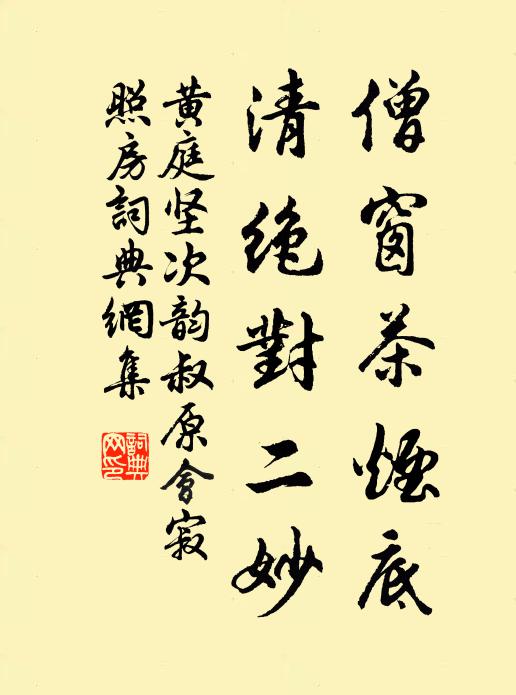 僧窗茶煙底
清絶對二妙
黄庭坚次韵叔原會寂
照房詞典網集
詞典
网印